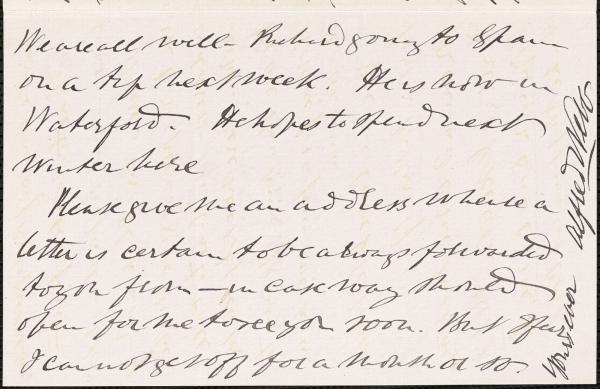 We are all well - Richard going to Spain
on a trip next week. He is now in
Waterford. He hopes to spend next
winter here
Please give me an address whence a
letter is certain to be always forwarded
to you from - in case way should
open for me to see you soon. But I fear
I can not get off for a month or so.
Yours ever Alfred Webb